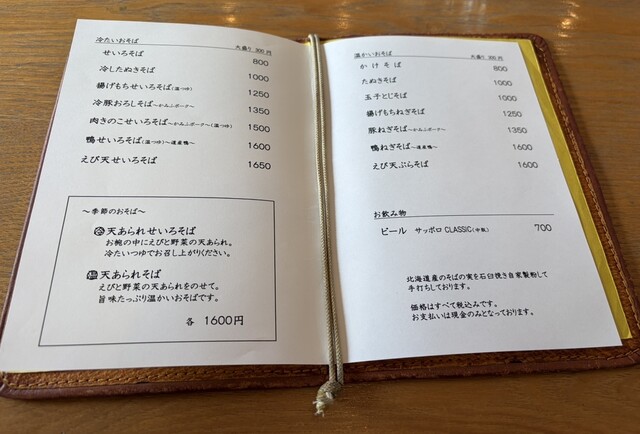 冷たいおそば 大盛り 300円
せいろそば 800
冷したぬきそば 1000
揚げもちせいろそば(温つゆ) 1250
冷豚おろしそば〜かみふポーク〜 1350
肉きのこせいろそば〜かみふポーク〜(温つゆ) 1500
鴨せいろそば(温つゆ)〜道産鴨〜 1600
えび天せいろそば 1650
〜季節のおそば〜
冷 天あられせいろそば
お椀の中にえびと野菜の天あられ。
冷たいつゆでお召し上がりください。
温 天あられそば
えびと野菜の天あられをのせて。
旨味たっぷり温かいおそばです。
各 1600円
温かいおそば 大盛り 300円
かけそば 800
たぬきそば 1000
玉子とじそば 1000
揚げもちねぎそば 1250
豚ねぎそば〜かみふポーク〜 1350
鴨ねぎそば〜道産鴨〜 1600
えび天ぷらそば 1600
お飲み物
ビール サッポロ CLASSIC(中瓶) 700
北海道産のそばの実を石臼挽き自家製粉して
手打ちしております。
価格はすべて税込みです。
お支払いは現金のみとなっております。